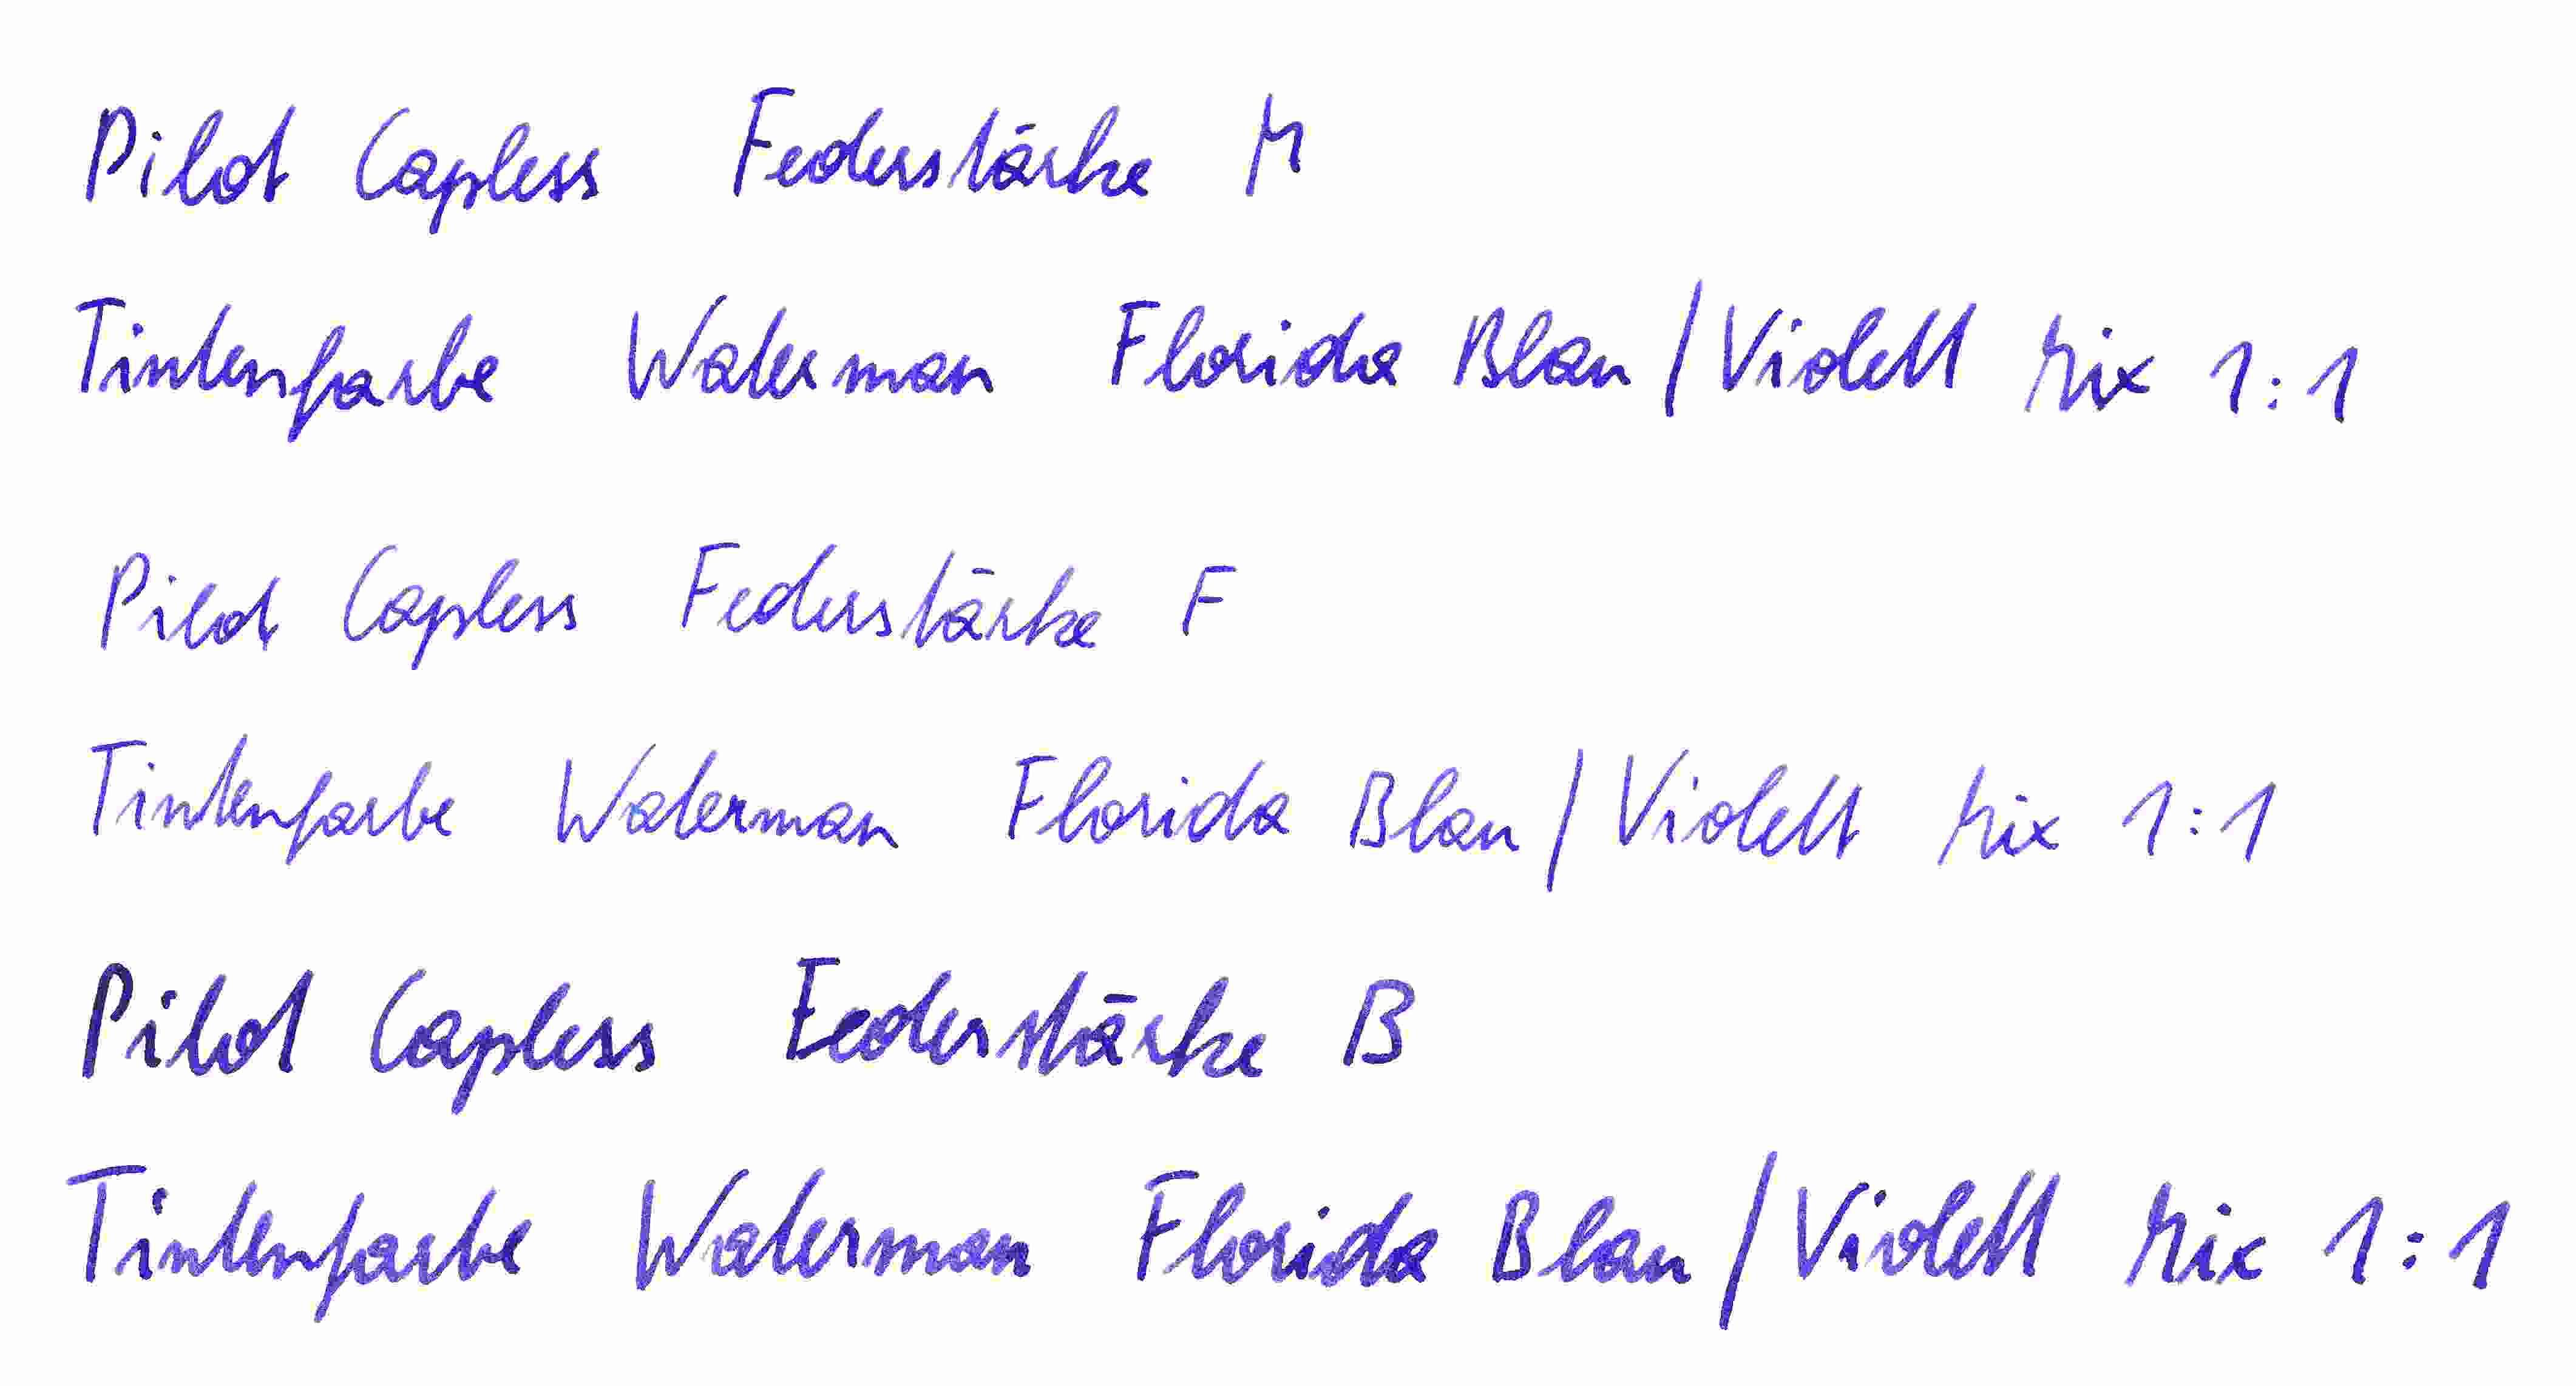 Pilot Capless Federstärke M
Tintenfarbe Waterman Florida Blau / Violett Mix 1:1
Pilot Capless Federstärke F
Tintenfarbe Waterman Florida Blau / Violett Mix 1:1
Pilot Capless Federstärke B
Tintenfarbe Waterman Florida Blau / Violett Mix 1:1